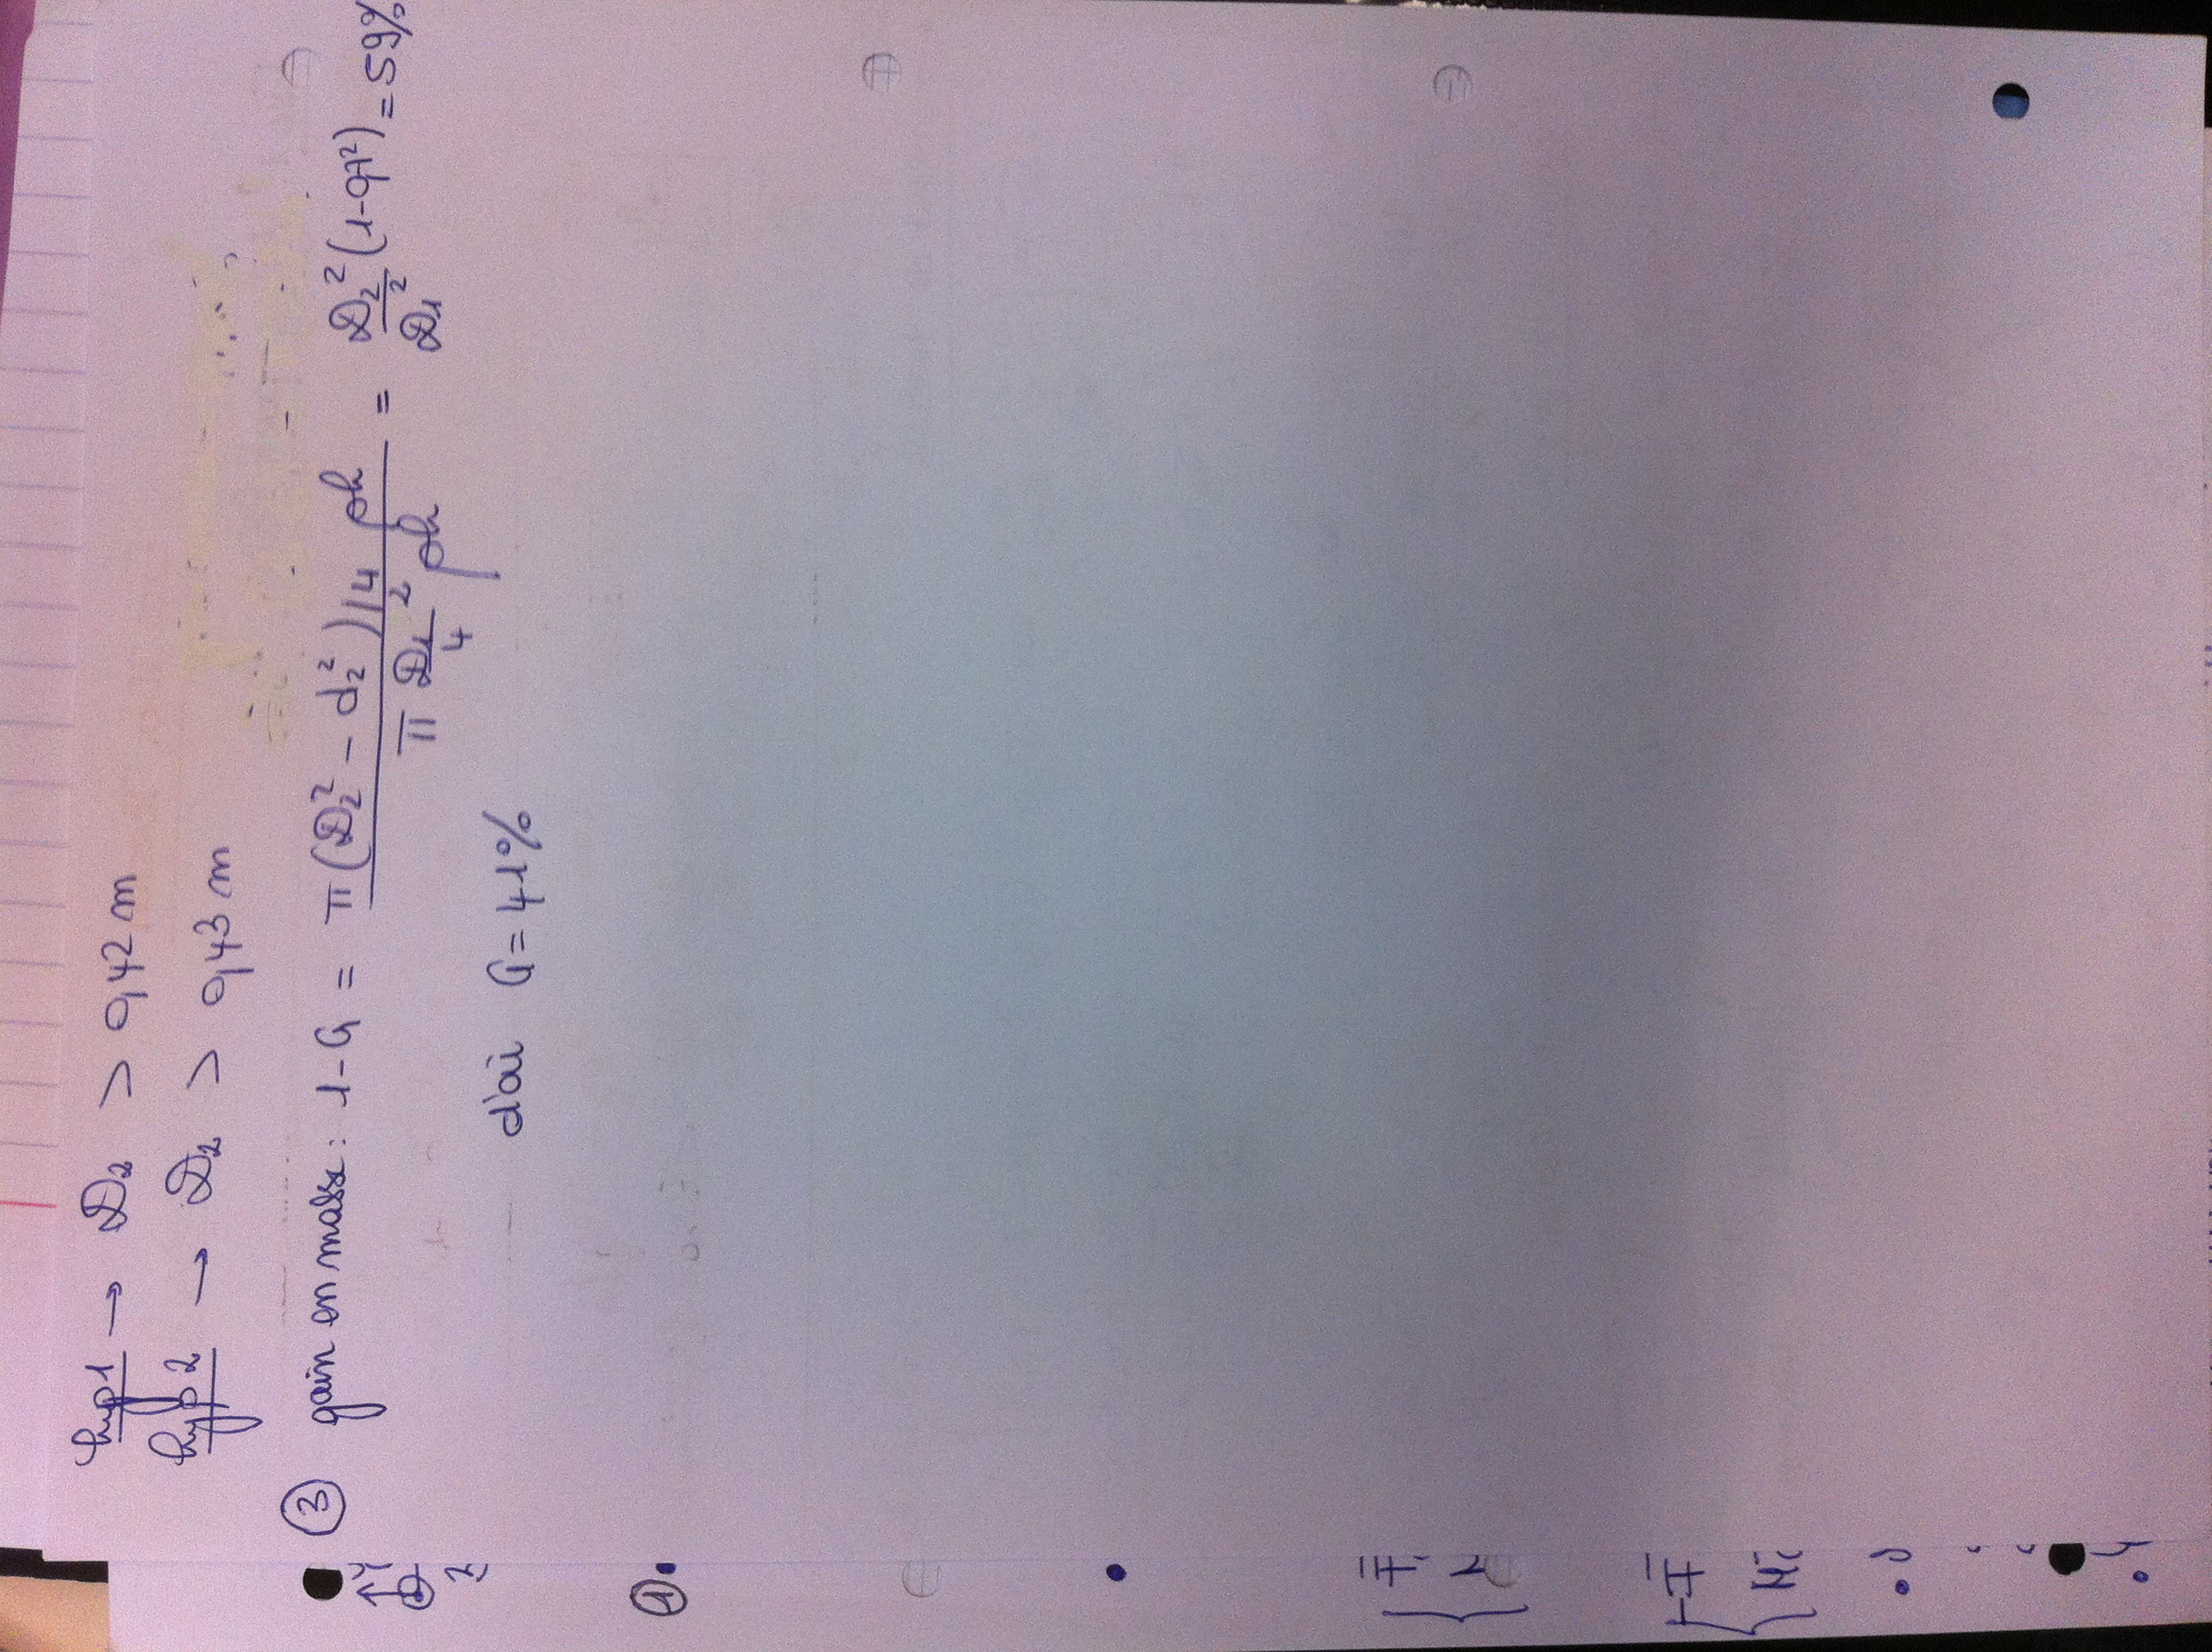 hyp1 → D₂ > 0,42 m
hyp 2 → D₂ > 0,43 m
③ gain en masse : 1-G = π(D₂² - d₂²)/4 ρh / π D₁²/4 ρh = D₂²/D₁² (1-0,7²) = 59%
d'où G = 41%
①